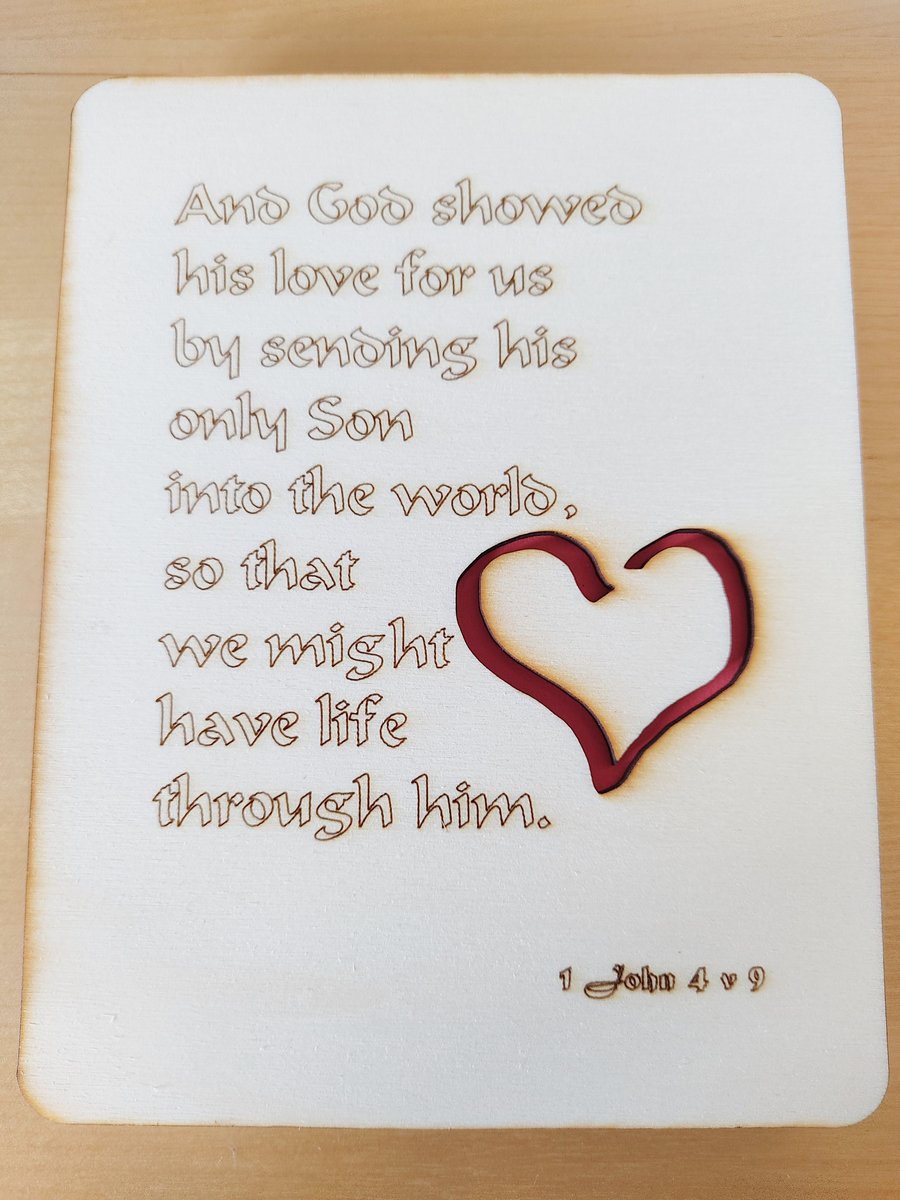 And God showed
his love for us
by sending his
only Son
into the world,
so that
we might
have life
through him.
1 John 4 v 9